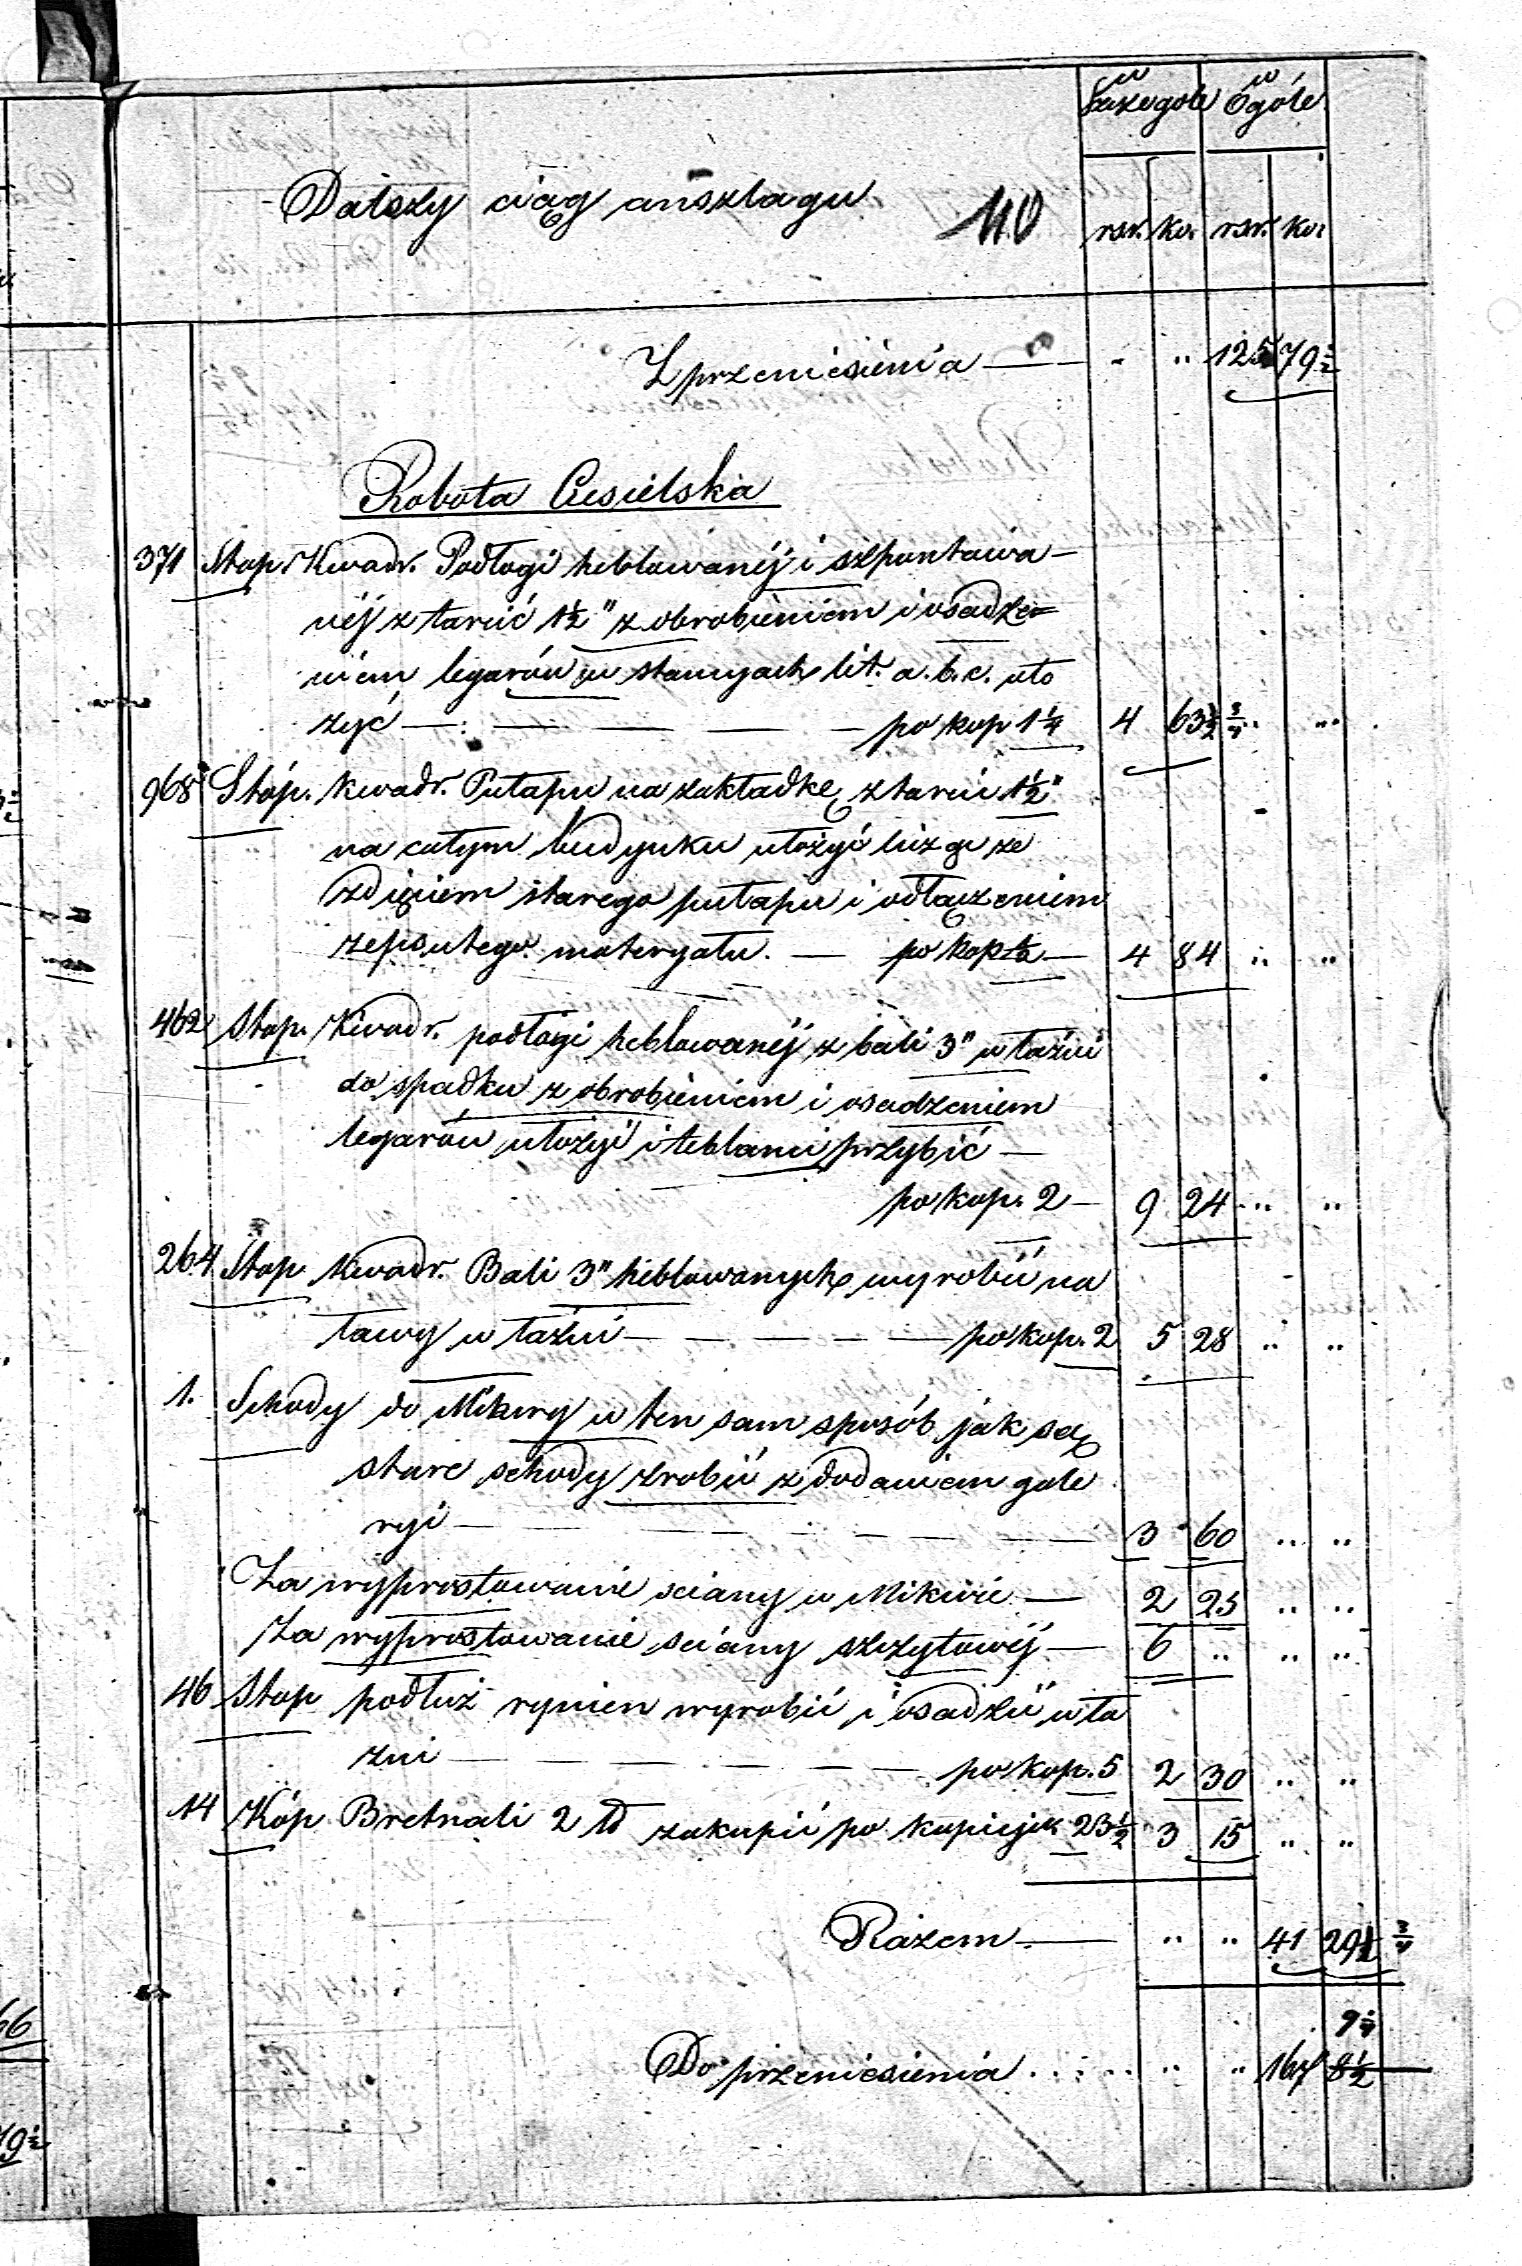 w Szczególe w Ogóle
Dalszy ciąg anszlagu 110 rsr. ko. rsr. ko.
Z przeniesienia — „ „ 125 79½
Robota Ciesielska
371 Stop. Kwadr. Podłogi heblowanéj i szpuntowa-
néj z tarcic 1½" z obrobieniem i osadze-
niem legarów w stancyach lit. a. b. c. uło
żyć — — — — po kop 1¼ 4 63½ ¾ „ „
968 Stóp. kwadr. Pułapu na zakładkę z tarcic 1½"
na całym budynku ułożyć luzgi ze
zdięciem starego pułapu i odłączeniem
zepsutego materyału. — po kop ½ — 4 84 „ „
462 Stop. Kwadr. podłogi heblowanéj z bali 3" w łaźni
do spadku z obrobieniem i osadzeniem
legarów ułożyć i teblami przybić —
po kop. 2 — 9 24 „ „
264 Stop kwadr. Bali 3" heblowanych wyrobić na
ławy w łaźni — — — — po kop. 2 5 28 „ „
1. Schody do Mikwy w ten sam sposób jak są
stare schody zrobić z dodaniem gale
ryi — — — — — 3 60 „ „
Za wyprostowanie sciany w Mikwie — 2 25 „ „
Za wyprostowanie sciany szczytowéj — 6 „ „ „
46 Stop podłuż rynien wyrobić i osadzić w ła
zni — — — — po kop. 5 2 30 „ „
14 Kóp Bretnali 2 zakupić po kopiejek 23½ 3 15 „ „
Razem — „ „ 41 29½ ¾
9¼
Do przeniesienia . . . . „ „ 167 8½
66
79½